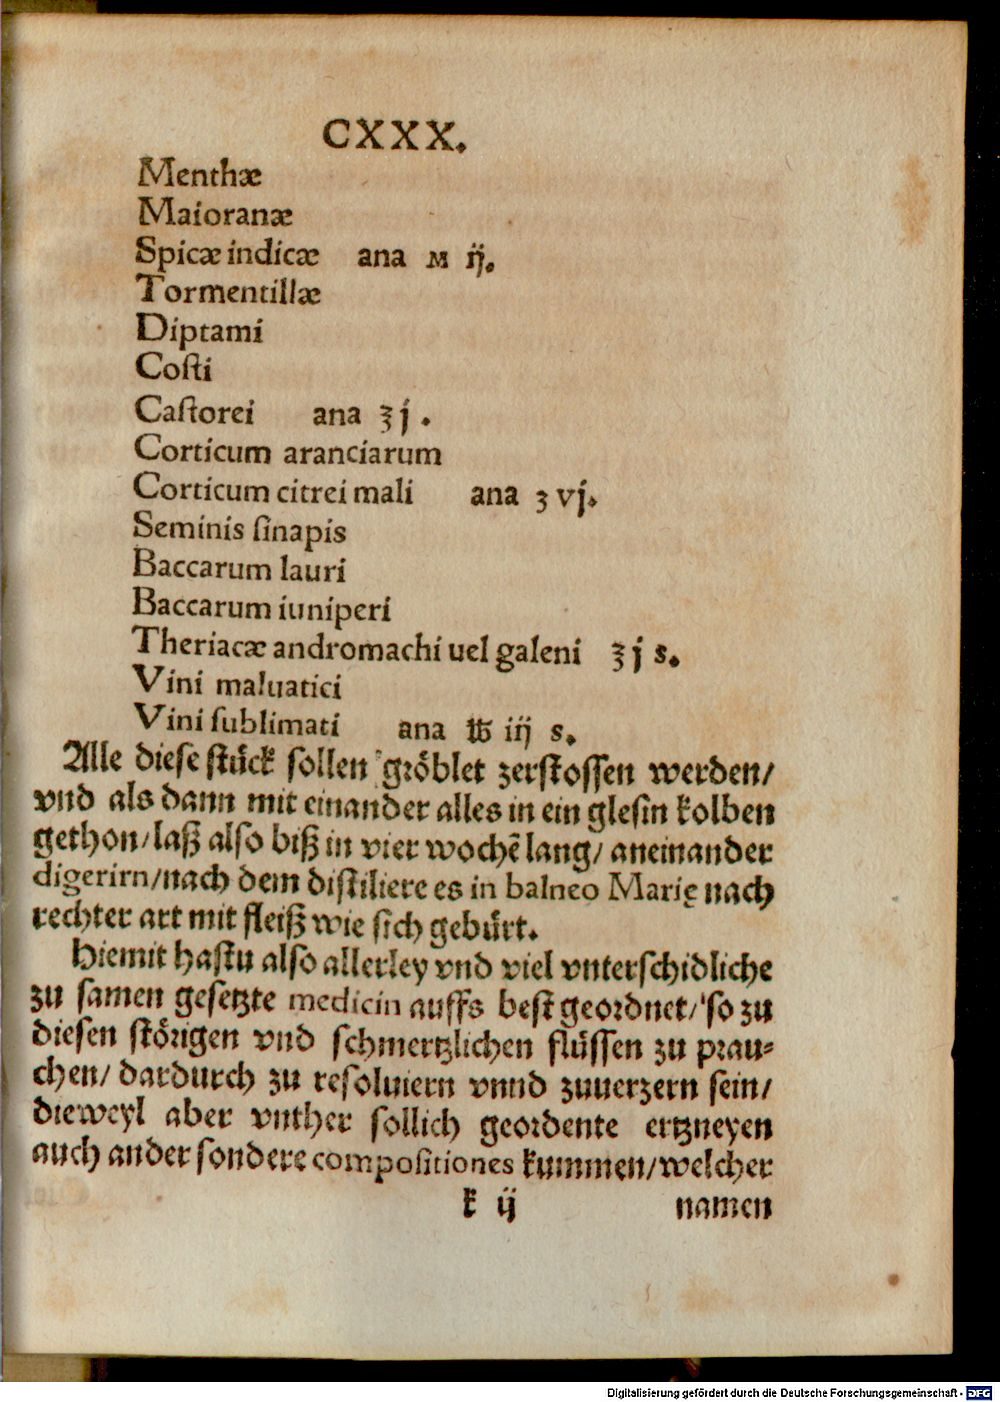 CXXX.
Menthæ
Maioranæ
Spicæ indicæ ana M ij.
Tormentillæ
Diptami
Costi
Castorei ana ℥ j.
Corticum aranciarum
Corticum citrei mali ana ʒ vj.
Seminis sinapis
Baccarum lauri
Baccarum iuniperi
Theriacæ andromachi uel galeni ℥ j s.
Vini maluatici
Vini sublimati ana ℔ iij s.
Alle diese stück sollen gröblet zerstossen werden/
vnd als dann mit einander alles in ein glesin kolben
gethon/laß also biß in vier wochē lang/ aneinander
digerirn/nach dem distiliere es in balneo Marię nach
rechter art mit fleiß wie sich gebürt.
Hiemit hastu also allerley vnd viel vnterschidliche
zu samen gesetzte medicin auffs best geordnet/ so zu
diesen störigen vnd schmertzlichen flüssen zu prau-
chen/ dardurch zu resoluiern vnnd zuuerzern sein/
dieweyl aber vnther sollich geordente ertzneyen
auch ander sondere compositiones kummen/welcher
k ij namen
Digitalisierung gefördert durch die Deutsche Forschungsgemeinschaft - DFG